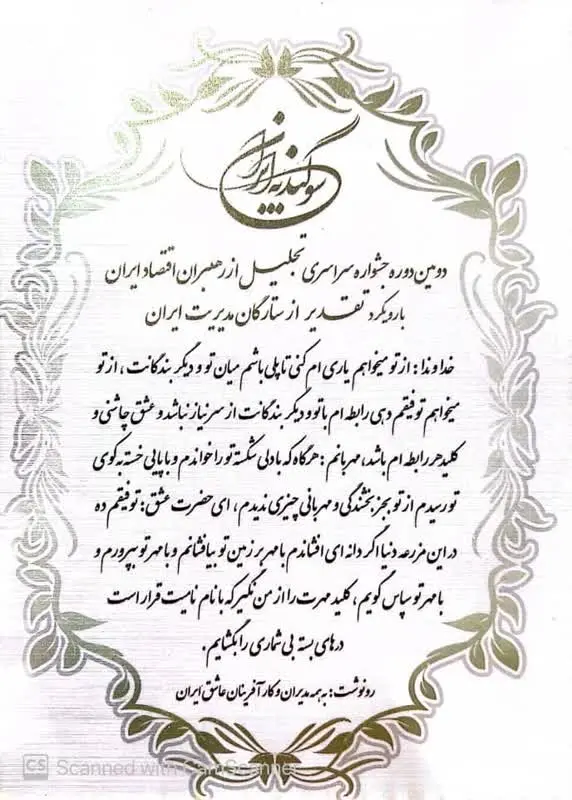 سوگند به ایران
دومین دوره جشنواره سراسری تجلیل از رهبران اقتصاد ایران
با رویکرد تقدیر از ستارگان مدیریت ایران
خداوندا : از تو میخواهم یاری ام کنی تا پلی باشم میان تو و دیگر بندگانت ، از تو
میخواهم توفیقم دهی رابطه ام با تو و دیگر بندگانت از سر نیاز نباشد و عشق چاشنی و
کلید هر رابطه ام باشد، مهربانم : هرگاه که با دلی شکسته تو را خواندم و با پایی خسته به کوی
تو رسیدم از تو بجز بخشندگی و مهربانی چیزی ندیدم ، ای حضرت عشق : توفیقم ده
در این مزرعه دنیا اگر دانه ای افشاندم با مهر بر زمین تو بیافشانم و با مهر تو بپرورم و
با مهر تو سپاس گویم ، کلید مهرت را از من نگیر که با نام نامیت قرار است
درهای بسته بی شماری را بگشایم .
رونوشت : به همه مدیران و کارآفرینان عاشق ایران
CS Scanned with CamScanner